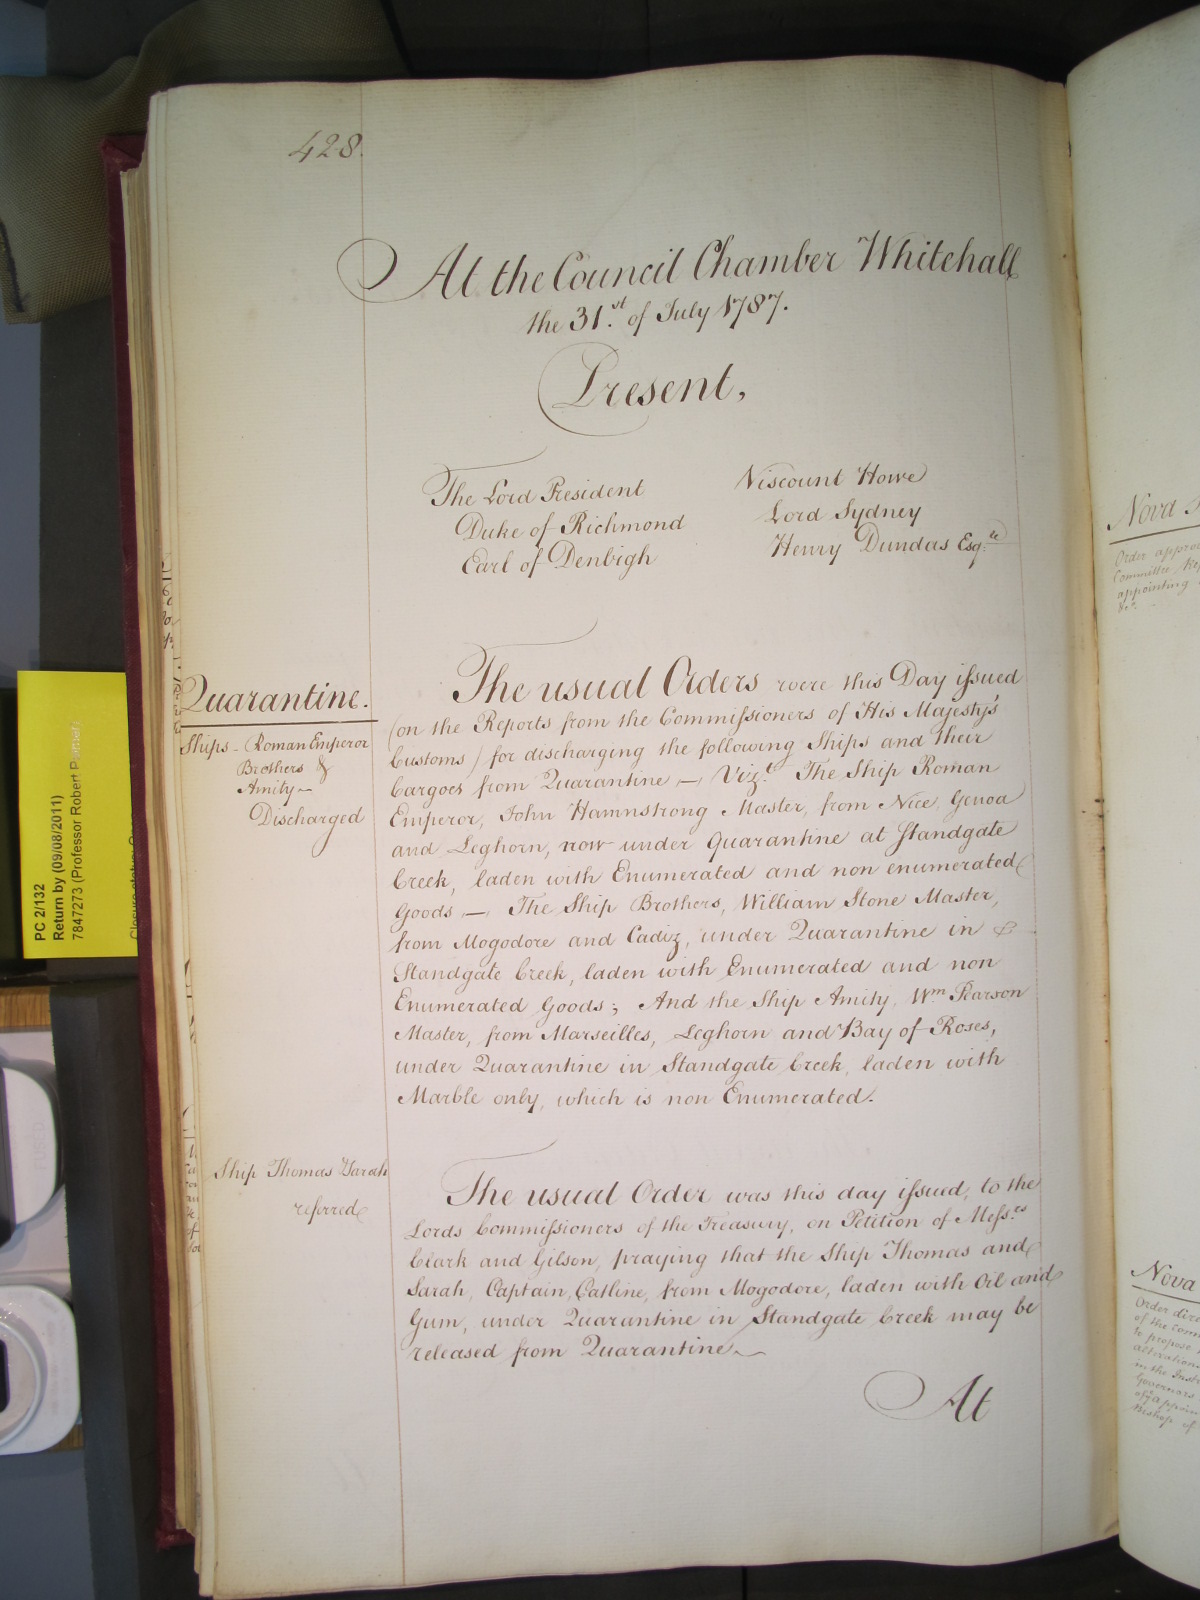 428.
At the Council Chamber Whitehall
the 31.st of July 1787.
Present,
The Lord President
Duke of Richmond
Earl of Denbigh
Viscount Howe
Lord Sydney
Henry Dundas Esq.re
Quarantine.
Ships - Roman Emperor
Brothers &
Amity -
Discharged
The usual Orders were this Day issued
(on the Reports from the Commissioners of His Majesty's
Customs) for discharging the following Ships and their
Cargoes from Quarantine — Vizt. The Ship Roman
Emperor, John Hamnstrong Master, from Nice, Genoa
and Leghorn, now under Quarantine at Standgate
Creek, laden with Enumerated and non enumerated
Goods —, The Ship Brothers, William Stone Master,
from Mogodore and Cadiz, under Quarantine in
Standgate Creek, laden with Enumerated and non
Enumerated Goods; And the Ship Amity, Wm Pearson
Master, from Marseilles, Leghorn and Bay of Roses,
under Quarantine in Standgate Creek, laden with
Marble only, which is non Enumerated.
Ship Thomas Sarah
referred
The usual Order was this day issued, to the
Lords Commissioners of the Treasury, on Petition of Mess.rs
Clark and Gilson, praying that the Ship Thomas and
Sarah, Captain, Catline, from Mogodore, laden with Oil and
Gum, under Quarantine in Standgate Creek may be
released from Quarantine
At
PC 2/132
Return by (09/08/2011)
7847273 (Professor Robert
Nova
Order
Committee
appointing
&c.
Nova
Order
of the
to propose
alteration
in the
Governors
of
Bishop of